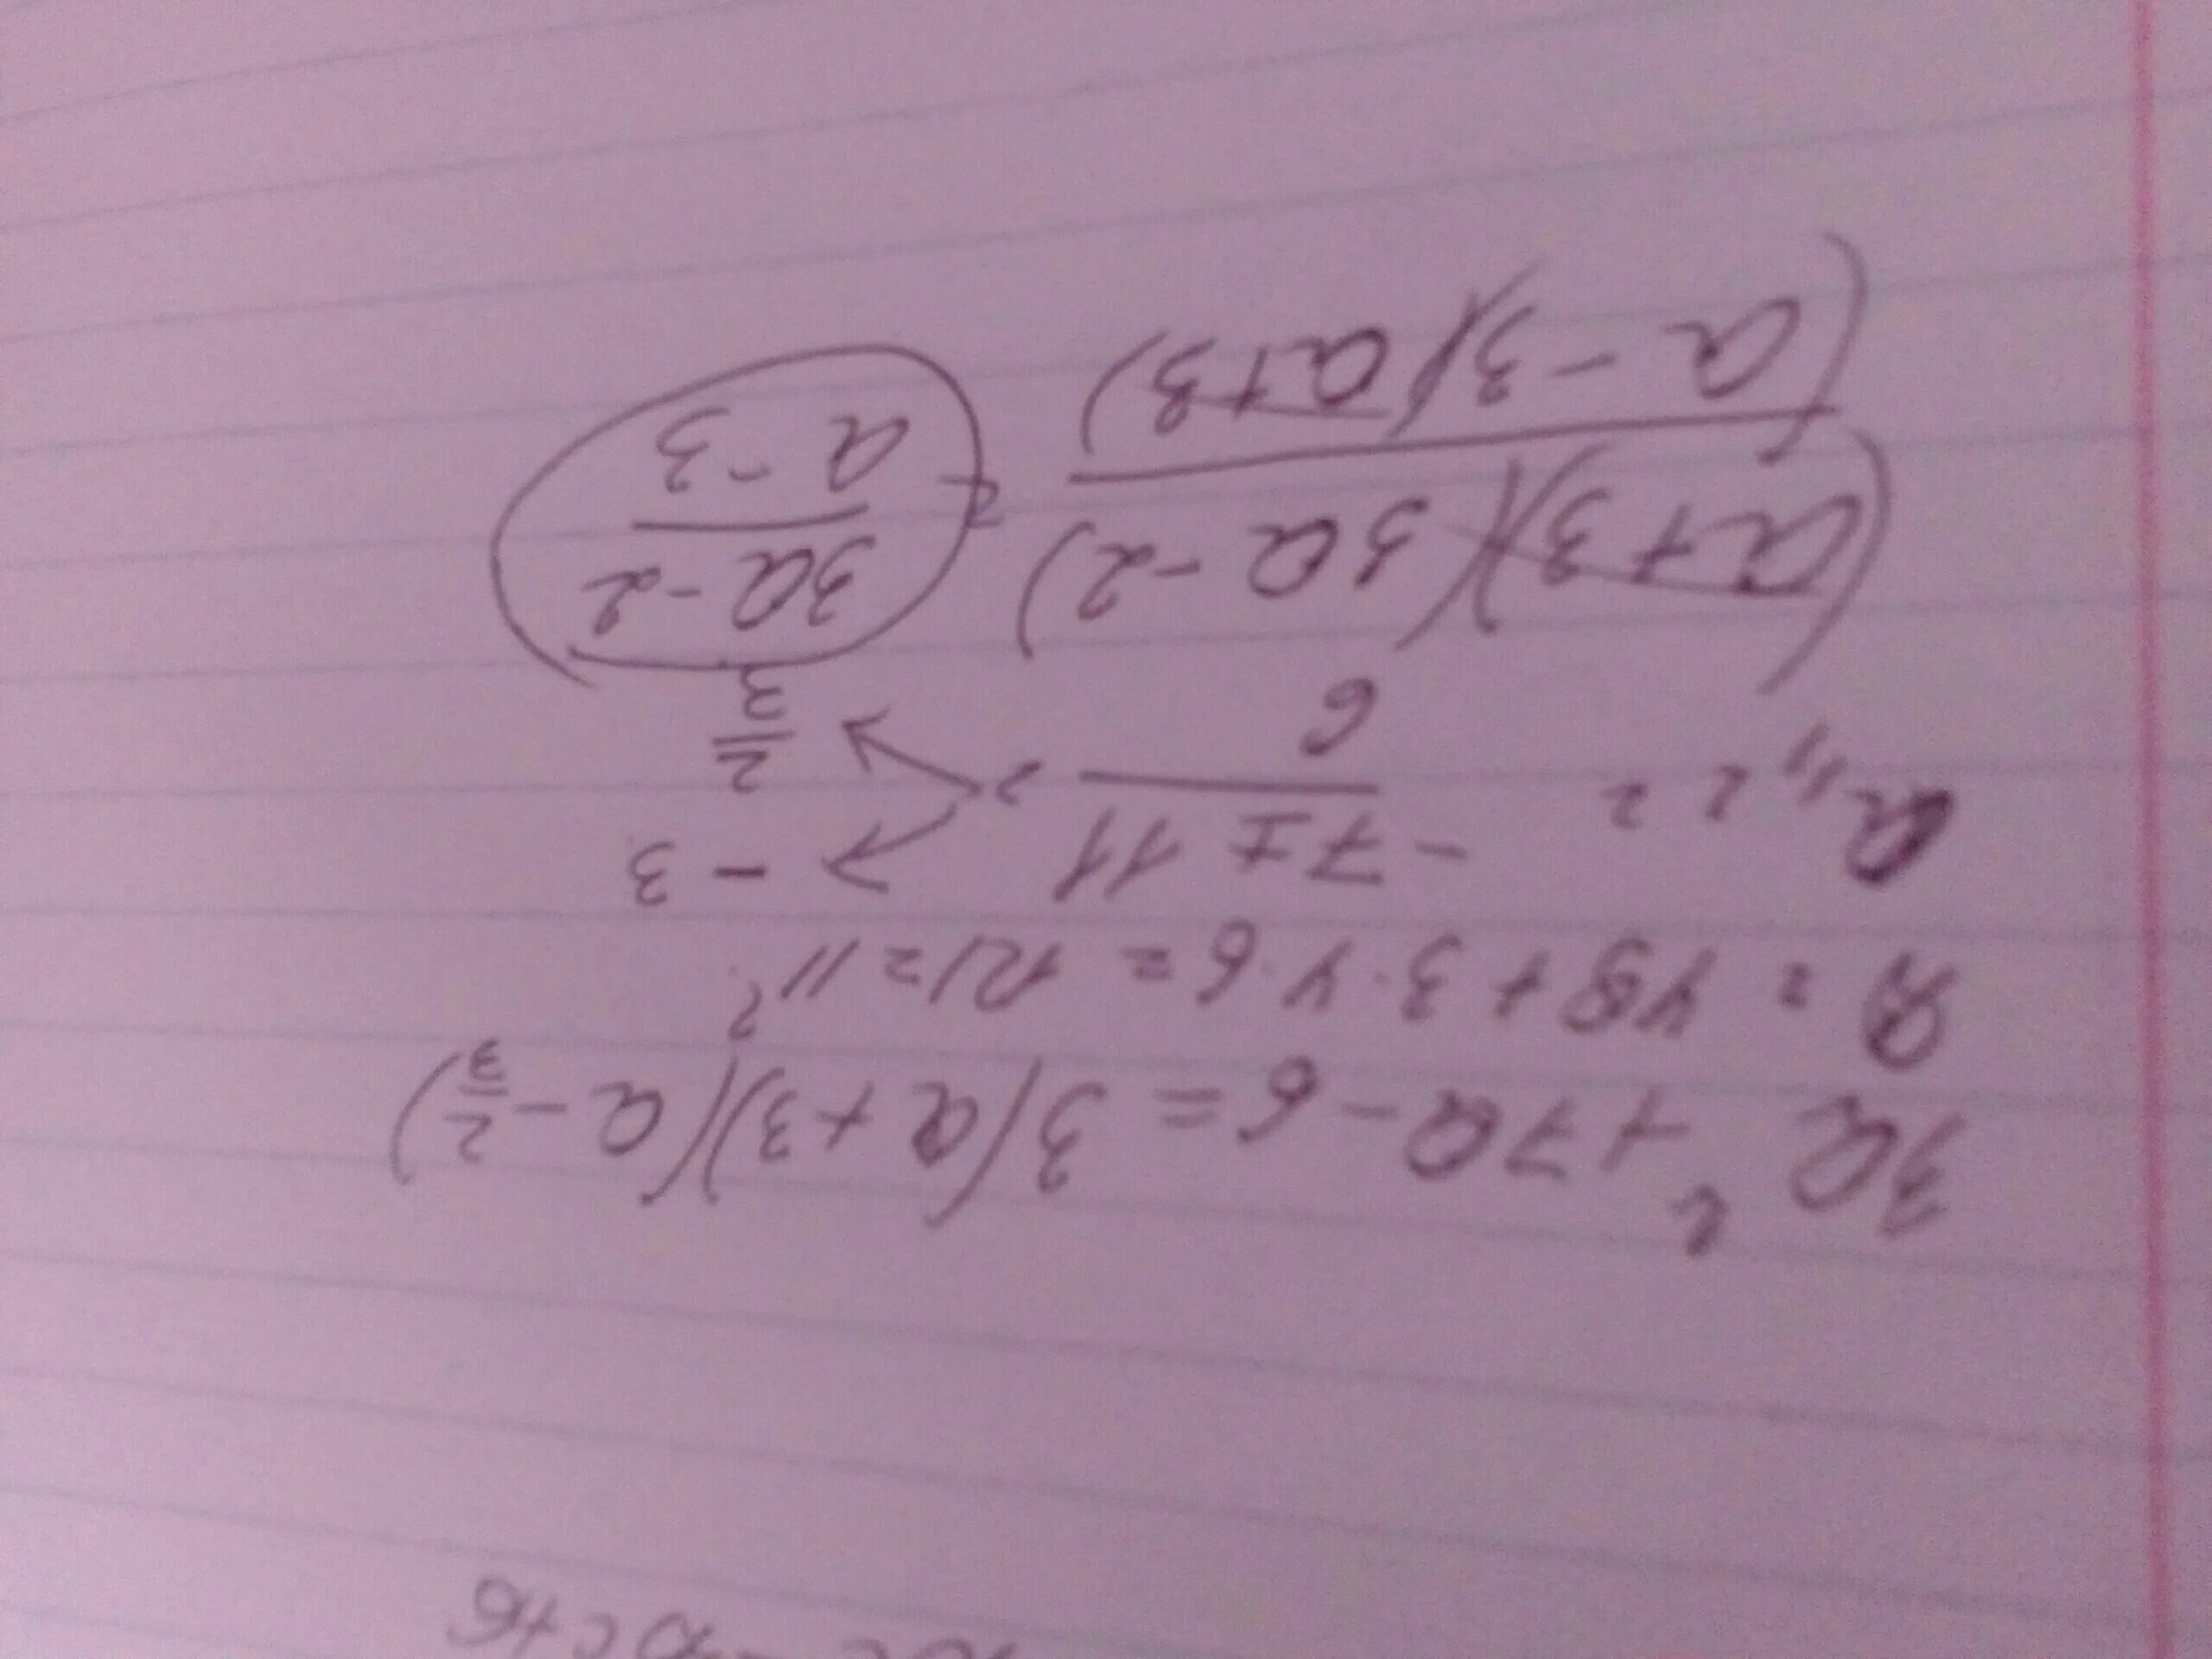 3a² + 7a - 6 = 3(a + 3)(a - 2/3)
D = 49 + 3·4·6 = 121 = 11²
a₁,₂ = (-7 ± 11)/6 = -3
2/3
(a + 3)(3a - 2) / (a - 3)(a + 3) = (3a - 2)/(a - 3)